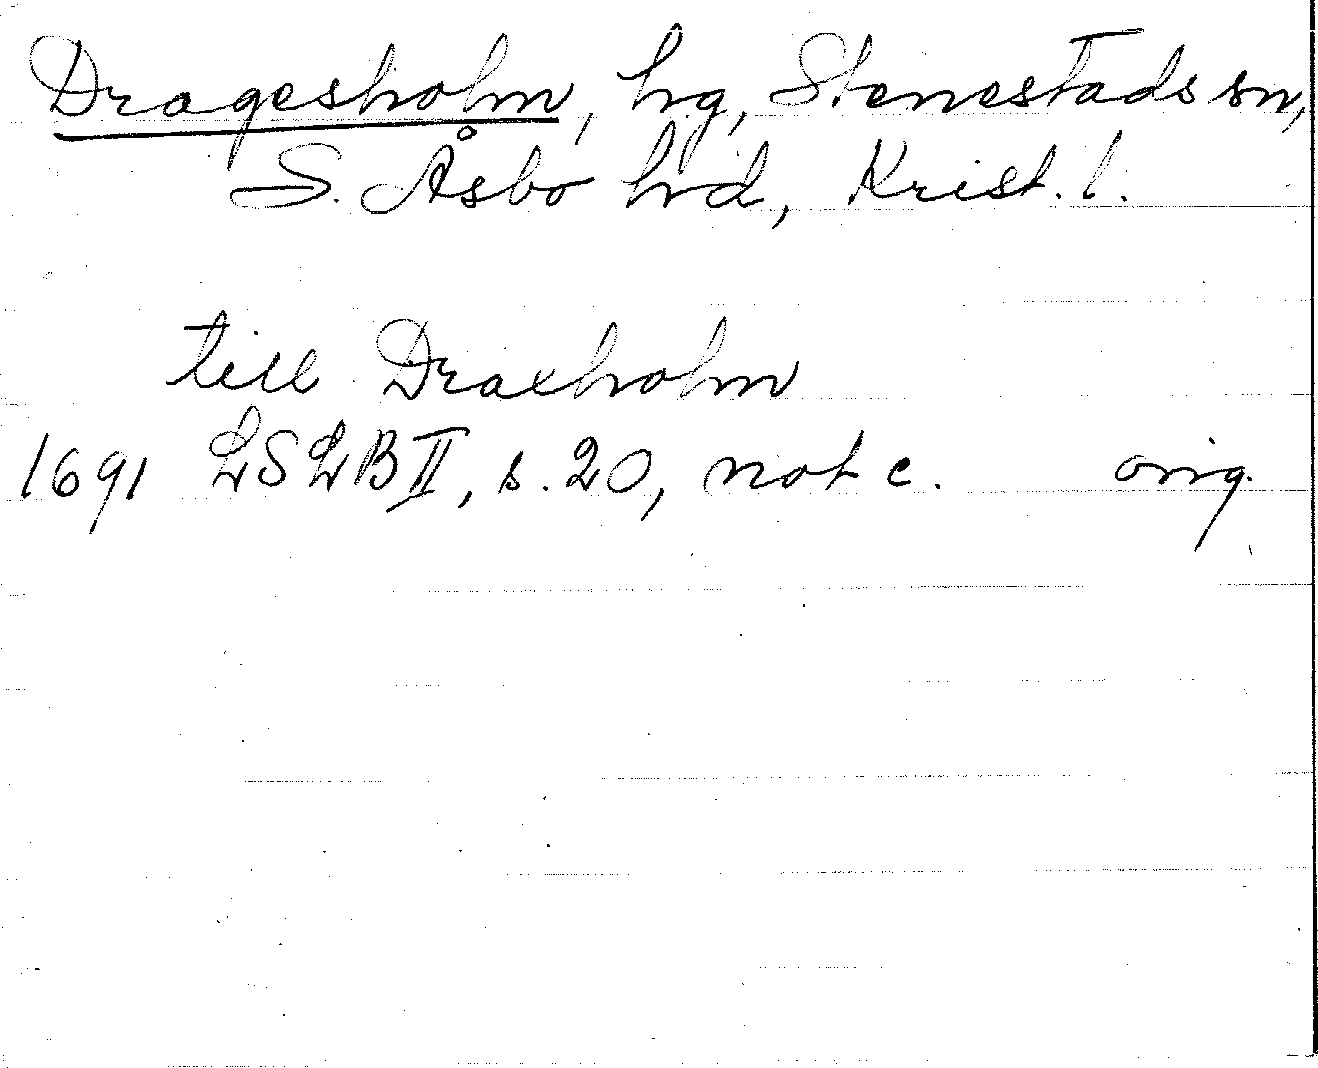 Dragesholm, hg, Stenestads sn,
S. Åsbo hd, Krist. l.
till Draxholm
1691 LSLB II, s. 20, not c. orig.